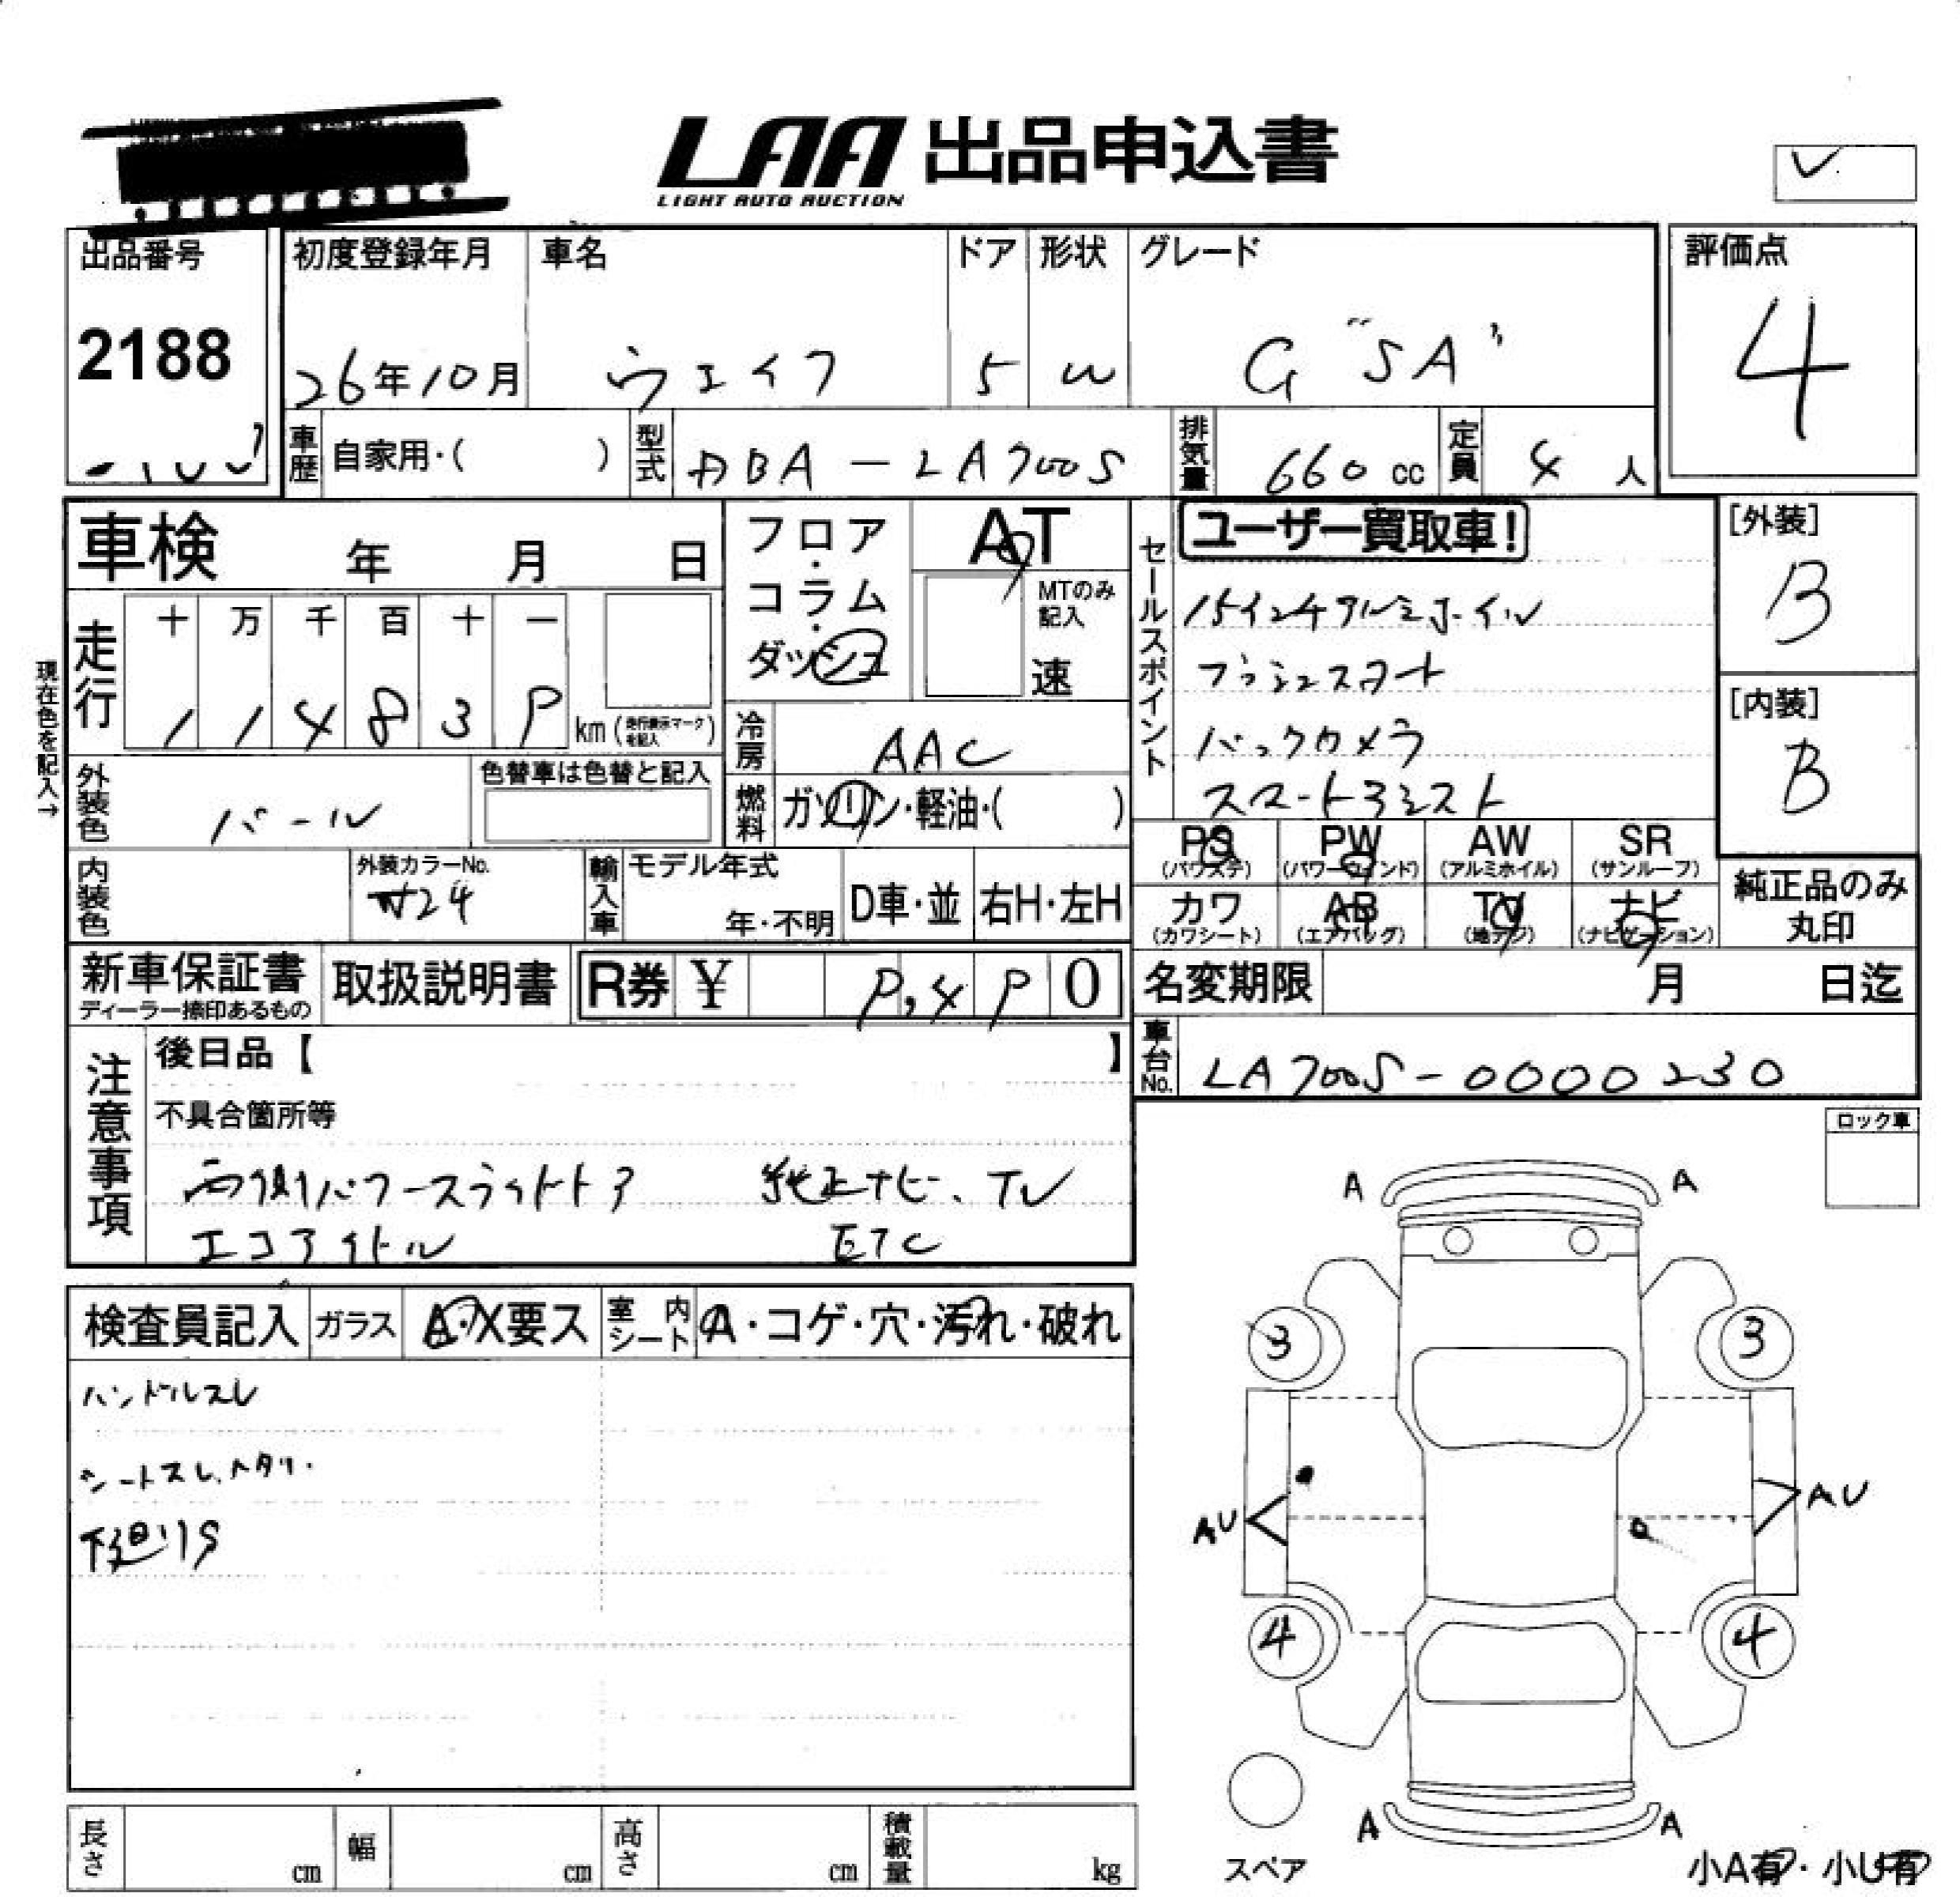 LAA 出品申込書
LIGHT AUTO AUCTION
出品番号
2188
初度登録年月
26年10月
車名
ウェイク
ドア
5
形状
W
グレード
G "SA"
評価点
4
車歴
自家用・( )
型式
DBA-LA700S
排気量
660 cc
定員
4 人
車検 年 月 日
フロア・コラム・ダッシュ
AT
MTのみ記入
速
セールスポイント
ユーザー買取車!
15インチアルミホイル
プッシュスタート
バックカメラ
スマートアシスト
[外装]
B
[内装]
B
現在色を記入→
走行
十 万 千 百 十 一
1 1 4 8 3 9
km (走行表示マークを記入)
冷房
AAC
燃料
ガソリン・軽油・( )
外装色
パール
色替車は色替と記入
内装色
外装カラーNo.
W24
輸入車
モデル年式
年・不明
D車・並
右H・左H
PS
(パワステ)
PW
(パワーウインド)
AW
(アルミホイル)
SR
(サンルーフ)
カワ
(カワシート)
AB
(エアバッグ)
TV
(地デジ)
ナビ
(ナビゲーション)
純正品のみ丸印
新車保証書
ディーラー捺印あるもの
取扱説明書
R券 ¥ 9,490
名変期限 月 日迄
車台No.
LA700S-0000230
注意事項
後日品【 】
不具合箇所等
両側パワースライドドア 純正ナビ、TV
エコアイドル ETC
ロック車
検査員記入
ガラス
A・X要ス
室内シート
A・コゲ・穴・汚れ・破れ
ハンドルスレ
シートスレ、ヘタリ.
下廻りS
A A
3 3
AU AU
4 4
A A
スペア
小A有・小U有
長さ cm
幅 cm
高さ cm
積載量 kg